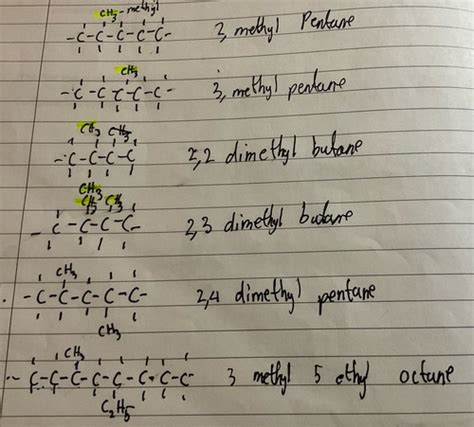 CH3 - methyl
-C-C-C-C-C- 3, methyl Pentane
CH3
-C-C-C-C-C- 3, methyl pentane
CH3 CH3
-C-C-C-C 2,2 dimethyl butane
CH3
CH3 CH3
-C-C-C-C- 2,3 dimethyl butane
CH3
-C-C-C-C-C- 2,4 dimethyl pentane
CH3
CH3
-C-C-C-C-C-C-C-C- 3 methyl 5 ethyl octane
C2H5